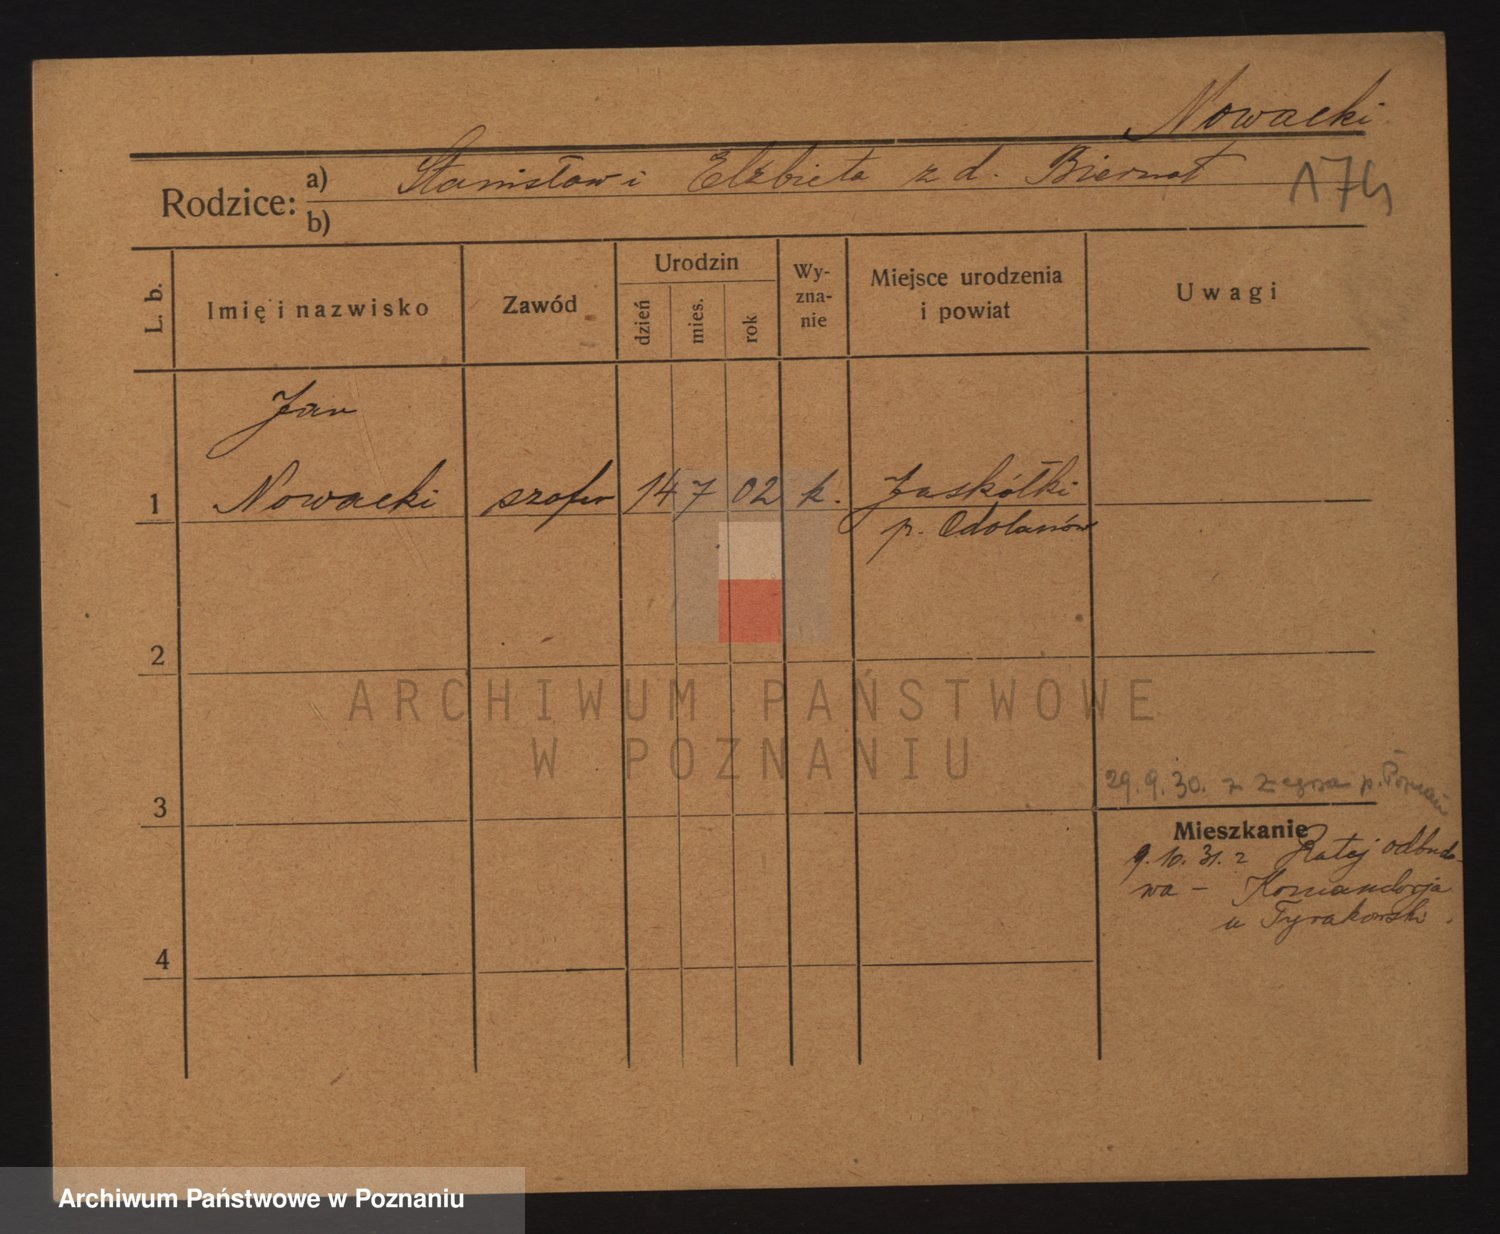 Nowacki
Rodzice: a) Stanisław i Elżbieta z d. Biernat
b)
174
L. b.
Imię i nazwisko
Zawód
Urodzin
dzień
mies.
rok
Wy-
zna-
nie
Miejsce urodzenia
i powiat
Uwagi
Jan
1 Nowacki szofer 14 7 02 k. Jaskółki
p. Odolanów
2
ARCHIWUM PAŃSTWOWE
W POZNANIU
29.9.30. z Zegrza p. Poznań
3
Mieszkanie
9.10.31. z Rataj odbudo-
wa - Komandorja
u Tyrakowski.
4
Archiwum Państwowe w Poznaniu